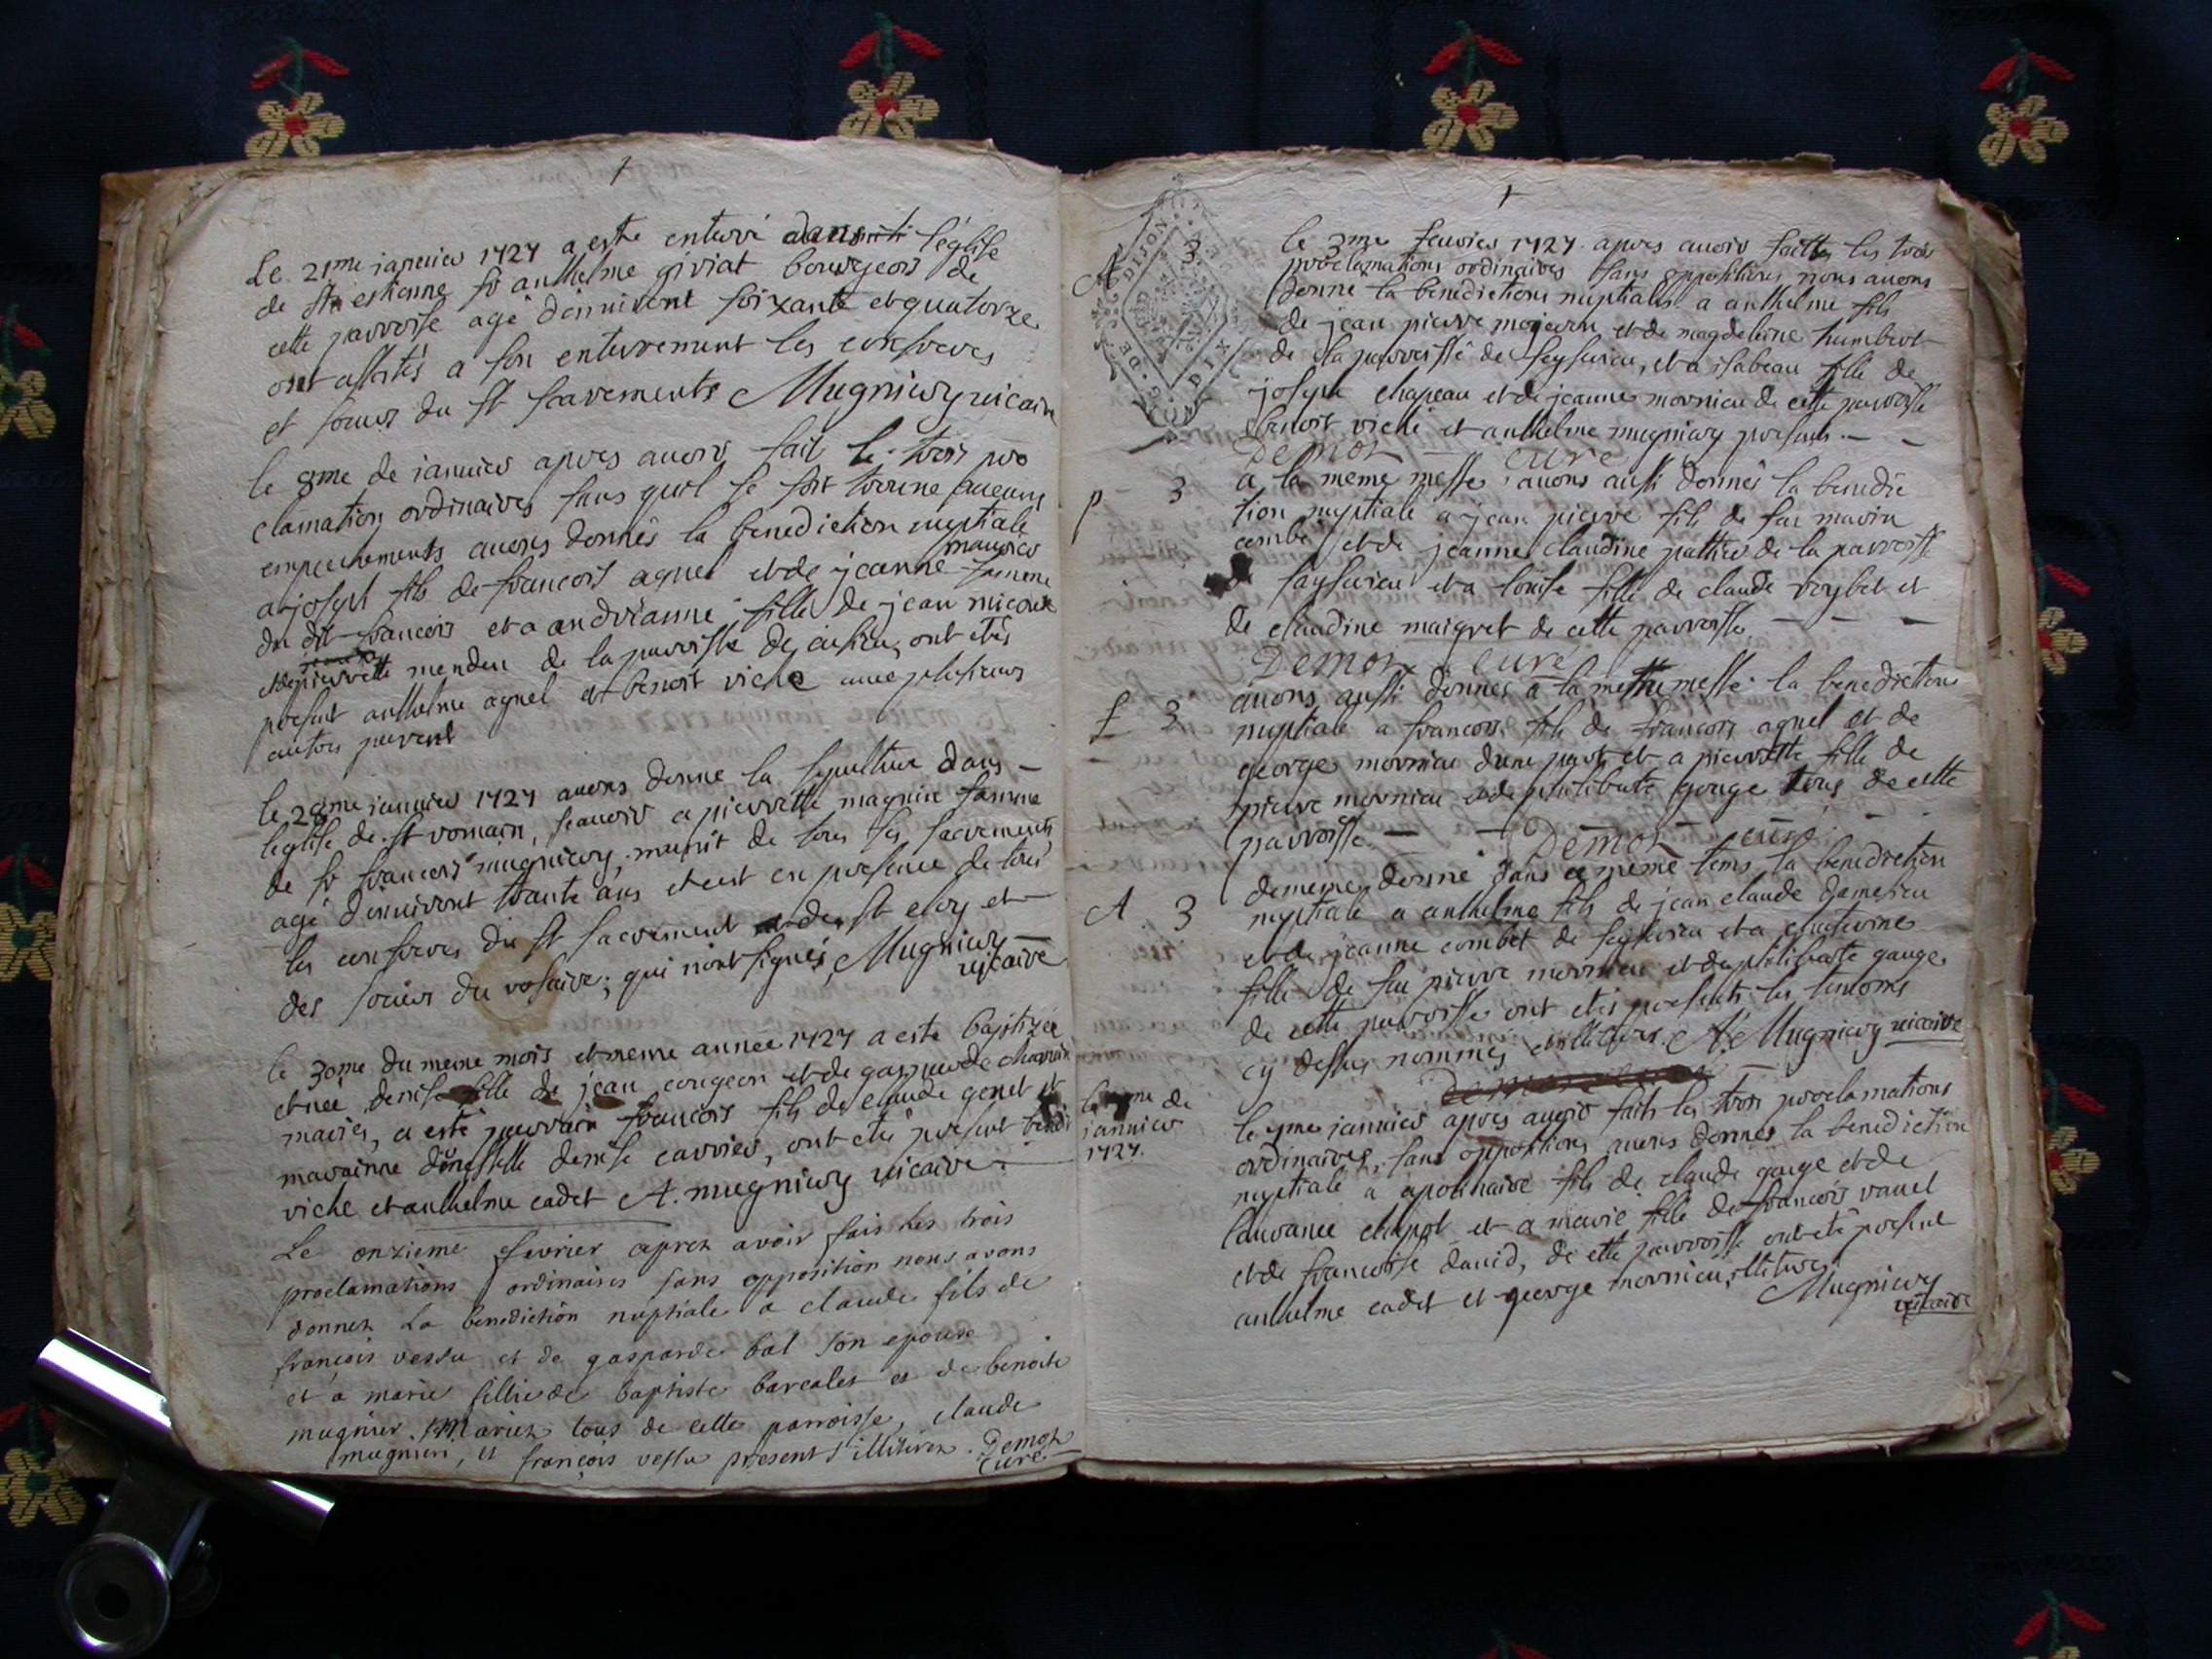 Le 21me ianuier 1727 a este enterré dans l'église
de St estienne sr anthelme giviat bourgeois de
cette parroisse agé denviront soixante et quatorze
ont assistés a son enterrement les confreres
et soeurs du st sacrements Mugniery vicaire
le 8me de ianuier apres auoir fait le trois pro
clamation ordinaires sans quil se soit trouvé aucuns
empechements auons donnés la benediction nuptiale
a joseph fils de francois agnel et de jeanne
femme
du dit francois et a andrianne fille de jean
et de pierrette mendeu de la parroisse de ont etés
present anthelme agnel et benoit viche avec plusieurs
autres parent
le 28me ianuier 1727 auons donne la sepulture dans
leglise de st romain, scauoir a pierrette magnin famme
de sr francois mugniery, munit de tous les sacrements
agé denviront trante ans et cest en presence de tous
les confreres du st sacrement et de st eloy et
des soeurs du rosaire; qui n'ont signés, Mugniery
vicaire
le 30me du meme mois et meme annee 1727 a este baptizée
et née denise fille de jean cougeon et de gasparde
mariés, a esté parrain francois fils de claude genet et
marainne denise carrier, ont etés present benoit
viche et anthelme cadet A. mugniery vicaire
Le onzieme fevrier aprez avoir fais les trois
proclamations ordinaires sans opposition nous avons
donnez La benediction nuptiale a claude fils de
françois vessu et de gasparde bal son epouse
et a marie fillie de baptiste barcalet et de benoite
mugnier Mariez tous de cette parroisse, claude
mugnier, et françois vessu present illiterez. Demoz
curé
G. DE DIJON
DIX
A 3
le 3me feurier 1727 apres auoir faitte les trois
proclamations ordinaires sans oppositions nous auons
donne la benedictions nuptiale a anthelme fils
de jean pierre et de magdeleine humbert
de la parroisse de seyssieu, et a isabeau fille de
joseph chapeau et de jeanne mornieu de cette parroisse
benoit viche et anthelme mugniery presents
Demoz curé
p 3
a la meme messe auons aussi donnés la benedic
tion nuptiale a jean pierre fils de feu
combe et de jeanne claudine pattier de la parroisse
de sayssieu et a louise fille de claude voybet et
de claudine maigret de cette parroisse
Demoz curé
f 3
auons aussi donnes a la meme messe la benedictions
nuptiale a francois fils de francois agnel et de
george mornieu dune part et a pierrette fille de
pierre mornieu et de philiberte gouge tous de cette
parroisse Demoz curé
A 3
dememe donne dans ce meme tems la benediction
nuptiale a anthelme fils de jean claude damesieu
et de jeanne combet de seyssieu et a
fille de feu pierre mornieu et de philiberte gauge
de cette parroisse ont etés presents les temoins
cy dessus nommés A. Mugniery vicaire
me de
iannier
1727.
le me iannier apres auoir faits les trois proclamations
ordinaires, sans oppositions auons donnés la benediction
nuptiale a apolinaire fils de claude gauge et de
laurance chapot et a marie fille de francois vauel
et de francoise dauid, de cette parroisse ont eté present
anthelme cadet et george mornieu, illitures
Mugniery
vicaire